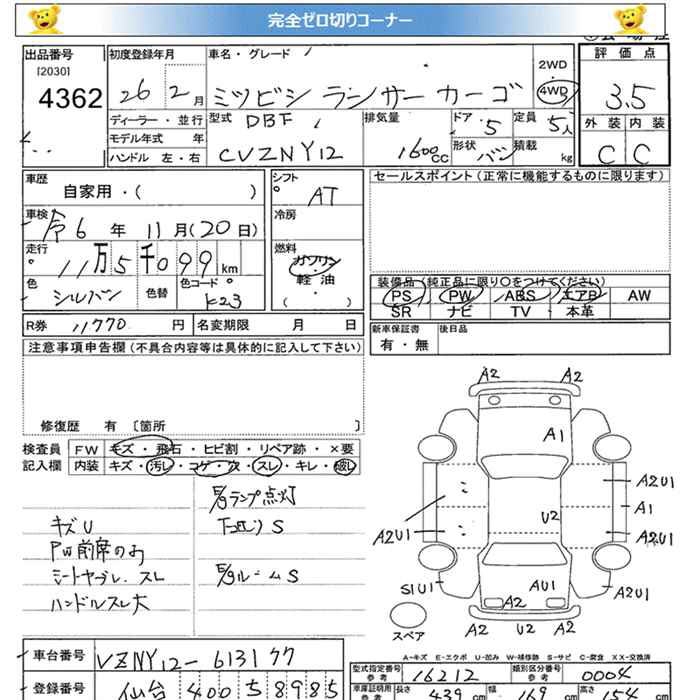 完全ゼロ切りコーナー
出品番号
[2030]
4362
初度登録年月
26 2月
車名・グレード
ミツビシ ランサーカーゴ
2WD
4WD
評価点
3.5
外装 内装
C C
ディーラー・並行
モデル年式 年
ハンドル 左・右
型式 DBF
CVZNY12
排気量
1600cc
ドア・5
定員 5人
形状 バン
積載 kg
車歴
自家用・( )
車検
令6年 11月(20日)
走行
11万5千099km
色 シルバー
色替
色コード K23
シフト
AT
冷房
燃料
ガソリン
・
軽油
( )
セールスポイント(正常に機能するものに限ります)
装備品(純正品に限り○をつけてください)
PS PW ABS エアB AW
SR ナビ TV 本革
R券 11770円
名変期限 月 日
新車保証書
有・無
後日品
注意事項申告欄(不具合内容等は具体的に記入して下さい)
修復歴 有 [箇所
検査員
記入欄
FW キズ・飛石・ヒビ割・リペア跡・×要
内装 キズ・汚レ・コゲ・穴・スレ・キレ・破レ
キズU
PW前席のみ
シートヤブレ、スレ
ハンドルスレ大
E/gランプ点灯
下廻りS
E/gルームS
A2 A2
A1
A2U1
A1
U2
A2U1
A2U1
S1U1
AU1
A2
A2
A2 U2 A2
スペア
A-キズ E-エクボ U-凹み W-補修跡 S-サビ C-腐食 XX-交換済
車台番号
VZNY12-613177
登録番号
仙台 400 5 8985
型式指定番号
参考
16212
類別区分番号
参考
0004
車庫証明用
参考
長さ 439cm
幅 169cm
高さ 154cm